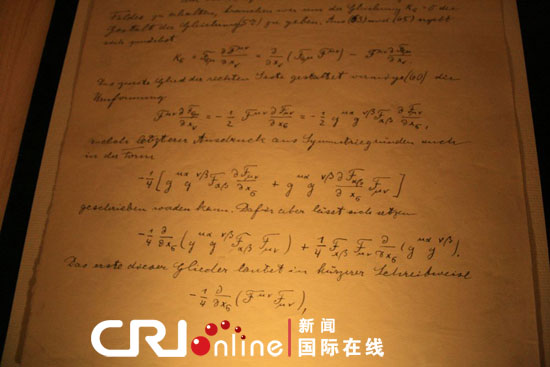 Feldes zu erhalten, brauchen wir nur die Gleichung κσ = 0 die
Gestalt der Gleichung (57) zu geben. Aus (63) und (65) ergibt
sich zunächst
κσ = Fσμ ∂F^μν/∂xν = ∂/∂xν (Fσμ F^μν) − F^μν ∂Fσμ/∂xν.
Das zweite Glied der rechten Seite gestattet vermöge (60) die
Umformung
F^μν ∂Fσμ/∂xν = −1/2 F^μν ∂Fμν/∂xσ = −1/2 g^μα g^νβ Fαβ ∂Fμν/∂xσ,
welch letzterer Ausdruck aus Symmetriegründen auch
in der Form
−1/4 [g^μα g^νβ Fαβ ∂Fμν/∂xσ + g^μα g^νβ ∂Fαβ/∂xσ Fμν]
geschrieben werden kann. Dafür aber lässt sich setzen
−1/4 ∂/∂xσ (g^μα g^νβ Fαβ Fμν) + 1/4 Fαβ Fμν ∂/∂xσ (g^μα g^νβ).
Das erste dieser Glieder lautet in kürzerer Schreibweise
−1/4 ∂/∂xσ (F^μν Fμν),
CRI online 新闻
国际在线